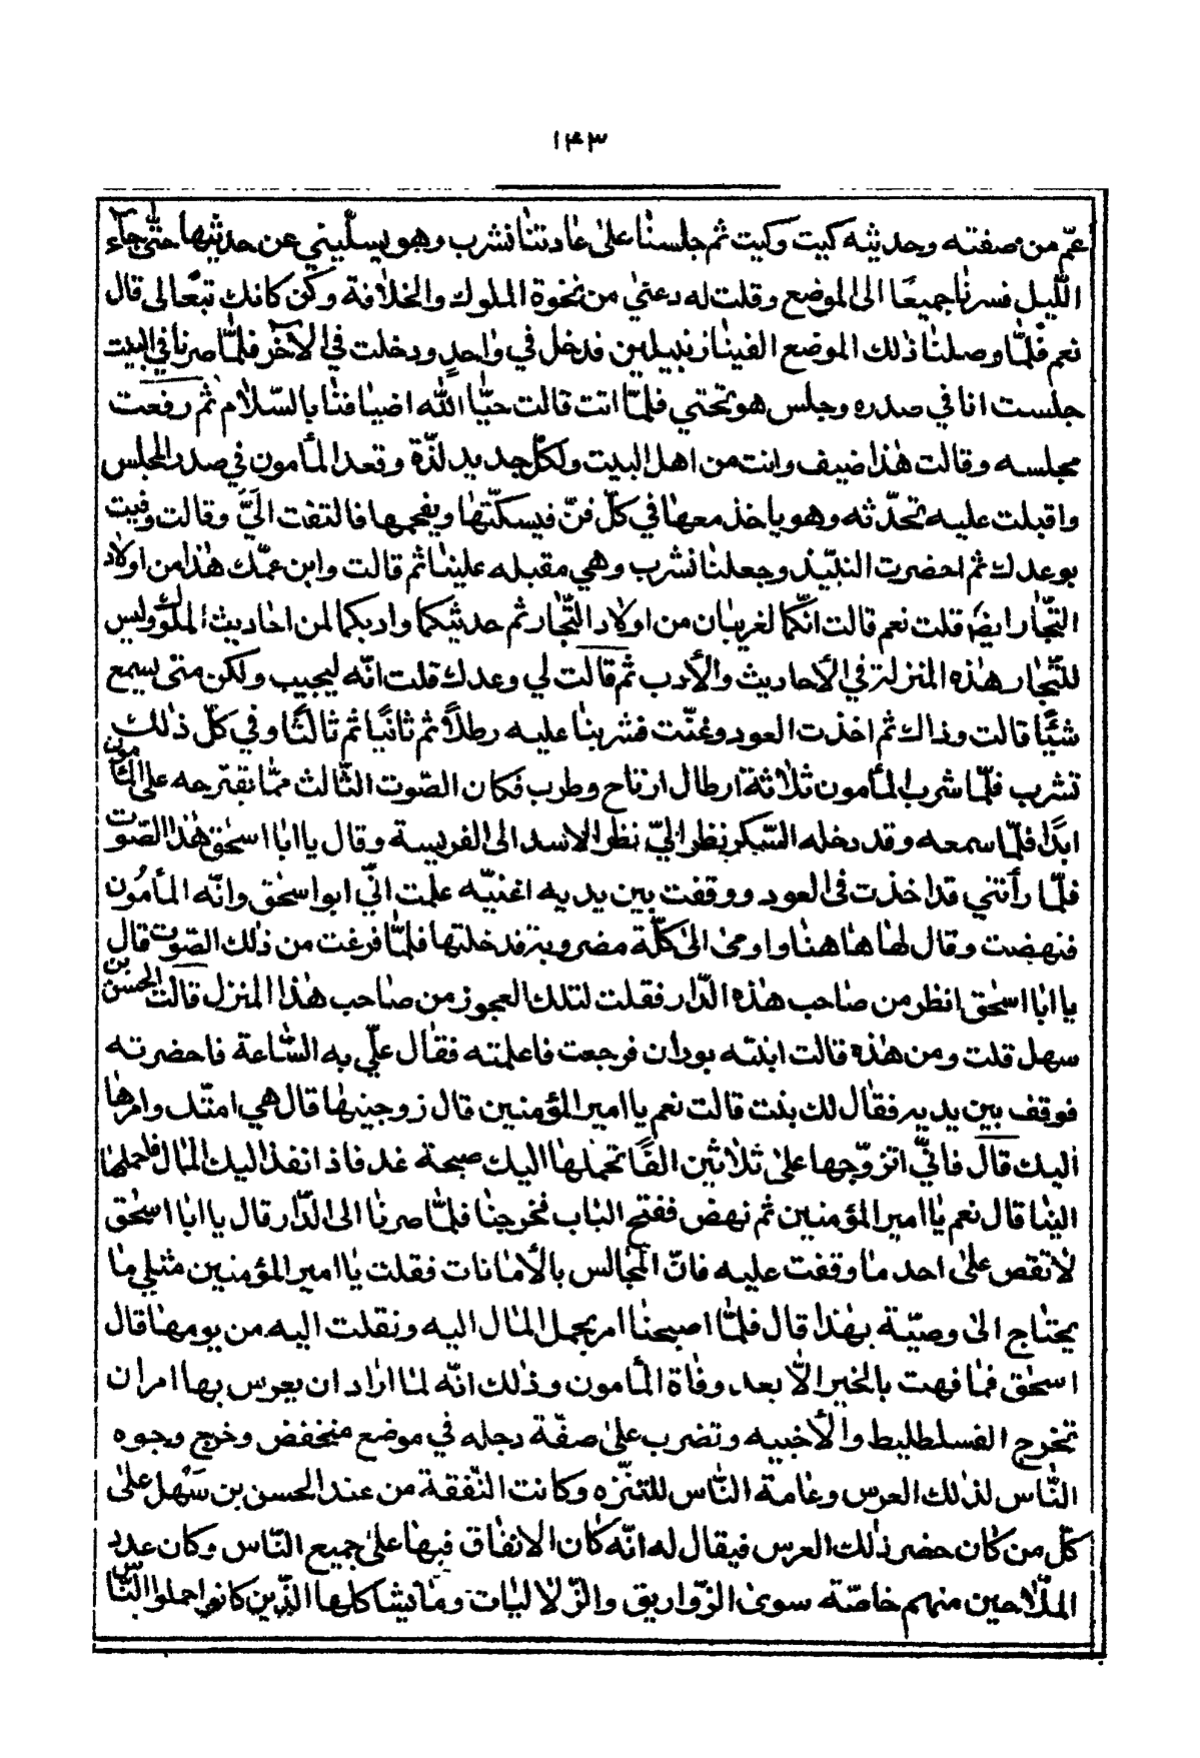 ١۴٣
عمّ من صفته وحديثه كيت وكيت ثم جلسنا على عادتنا نشرب وهو يسلّيني عن حديثها حتى جاء
اللّيل فسرنا جميعًا الى الموضع وقلت له دعني من نخوة الملوك والخلافة وكن كانك تبعًا لى قال
نعم فلمّا وصلنا ذلك الموضع الفينا زنبيلين فدخل في واحد ودخلت في الآخر فلمّا صرنا في البيت
جلست انا في صدره وجلس هو تحتي فلمّا اتت قالت حيّا الله اضيافنا بالسّلام ثم رفعت
مجلسه وقالت هذا ضيف وانت من اهل البيت ولكلّ جديد لذّة وقعد المأمون في صدر المجلس
واقبلت عليه تحدّثه وهو ياخذ معها في كلّ فنّ فيسكّتها ويفحمها فالتفت اليَّ وقالت وفيت
بوعدك ثم احضرت النبيّذ وجعلنا نشرب وهي مقبله علينا ثم قالت وابن عمّك هذا من اولاد
التجّار ايضًا قلت نعم قالت انّكما لغريبان من اولاد التّجّار ثم حديثكما وادبكما لمن احاديث الملوك وليس
للتّجّار هذه المنزلة في الأحاديث والأدب ثم قالت لي وعدك قلت انّه ليجيب ولكن متى يسمع
شيًّا قالت وذاك ثم اخذت العود وغنّت فشربنا عليه رطلاً ثم ثانيًا ثم ثالثًا وفي كلّ ذلك
تشرب فلمّا شرب المأمون ثلاثة ارطال ارتاح وطرب فكان الصّوت الثّالث ممّا نقترحه على المأمون
ابدًا فلمّا سمعه وقد دخله السّكر نظر اليّ نظر الاسد الى الفريسة وقال يا ابا اسحق هذا الصّوت
فلمّا رأتني قد اخذت في العود ووقفت بين يديه اغنيّه علمت انّي ابو اسحق وانّه المأمون
فنهضت وقال لها هاهنا واومى الى كلّة مضروبة فدخلتها فلمّا فرغت من ذلك الصّوت قال
يا ابا اسحق انظر من صاحب هذه الدّار فقلت لتلك العجوز من صاحب هذا المنزل قالت الحسن بن
سهل قلت ومن هذه قالت ابنته بوران فرجعت فاعلمته فقال علّي به السّاعة فاحضرته
فوقف بين يديه فقال لك بنت قالت نعم يا امير المؤمنين قال زوجينها قال هي امتك وامرها
اليك قال فانّي اتزوّجها على ثلاثين الفًا تحملها اليك صبحة غد فاذا نفذ اليك المال فاحملها
الينا قال نعم يا امير المؤمنين ثم نهض ففتح الباب فخرجنا فلمّا صرنا الى الدّار قال يا ابا اسحق
لا تقص على احد ما وقفت عليه فانّ المجالس بالأمانات فقلت يا امير المؤمنين مثلي ما
يحتاج الى وصيّة بهذا قال فلمّا اصبحنا امر بحمل المال اليه ونقلت اليه من يومها قال
اسحق فما فهت بالخبر الاّ بعد وفاة المأمون وذلك انّه لما اراد ان يعرس بها امر ان
تخرج الفسلطليط والأخبيه وتضرب على صفّة دجله في موضع منخفض وخرج وجوه
النّاس لذلك العرس وعامة النّاس للتنّزه وكانت النّفقة من عند الحسن بن سَهل على
كلّ من كان حضر ذلك العرس فيقال له انّه كان الانفاق فيها على جميع النّاس وكان عدد
الملّاحين منهم خاصّة سوى الزّواريق والزّلاليات وما يشاكلها الذّين كانوا حملوا النّاس